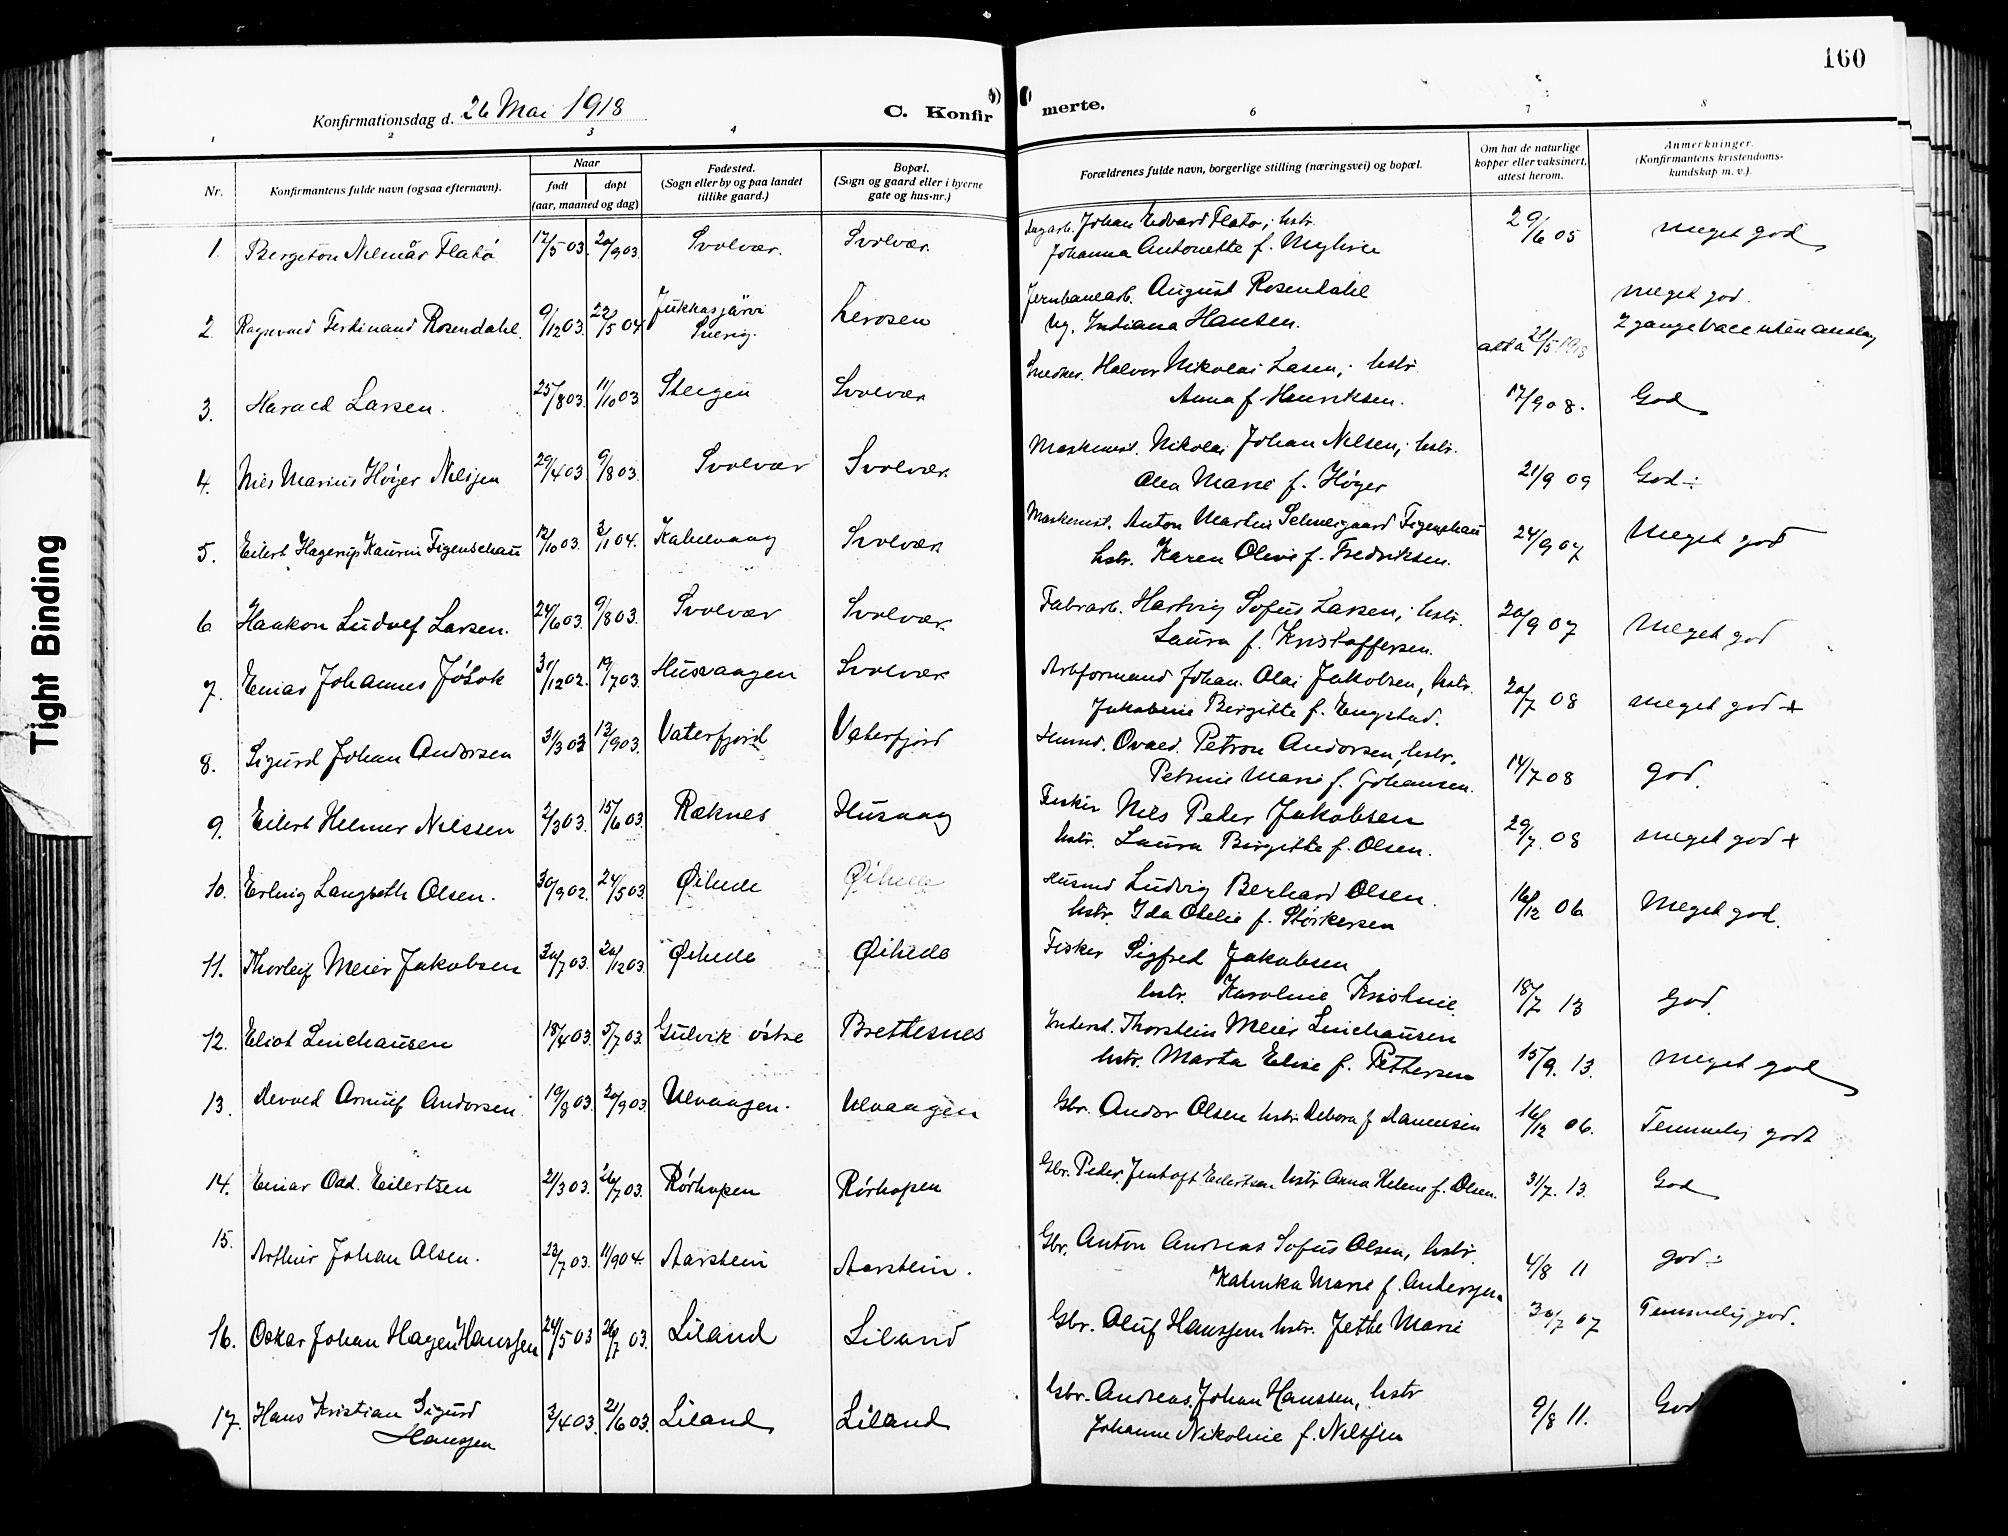 160
Konfirmationsdag d. 26 Mai 1918
C. Konfirmerte.
1 2 3 4 5 6 7 8
Nr.
Konfirmantens fulde navn (ogsaa efternavn).
Naar
født
døpt
(aar, maaned og dag)
Fødested.
(Sogn eller by og paa landet
tillike gaard.)
Bopæl.
(Sogn og gaard eller i byerne
gate og hus-nr.)
Forældrenes fulde navn, borgerlige stilling (næringsvei) og bopæl.
Om hat de naturlige
kopper eller vaksinert,
attest herom.
Anmerkninger.
(Konfirmantens kristendoms-
kundskap m. v.).
1. Bergeton Nilmår Flatø 17/5 03. 20/9 03. Svolvær. Svolvær. Dagarb. Johan Edvard Flatø; hstr. 29/6 05 meget god
Johanna Antonette f. Myhre
2. Ragnvald Ferdinand Rosendahl. 9/12 03. 22/5 04 Jukkasjärvi Sverig. Lerosen Jernbanearb. August Rosendahl meget god.
Ug. Indiana Hansen. 21/5 1918 2 gange vacc uten anslag
3. Harald Larsen. 25/8 03. 11/10 03 Steigen Svolvær Snedker. Halvor Nikolai Lasen; hstr.
Anna f. Henriksen. 17/9 08. God
4. Nils Marius Høyer Nilsjen 29/4 03 9/8 03. Svolvær Svolvær. Maskinmst. Nikolai Johan Nilsen; hstr.
Olea Marie f. Høyer 21/9 09 God ÷
5. Eilert Hagerup Kaurin Figenschau 12/10 03. 3/1 04. Kabelvaag Svolvær. Maskinmst. Anton Martin Selmergaard Figenschau 24/9 07 Meget god
hstr. Karen Olivie f. Fredriksen.
6 Haakon Ludvef Larsen. 24/6 03. 9/8 03. Svolvær Svolvær. Fabrarb. Hartvig Sofus Larsen; hstr. 20/9 07 Meget god
Laura f. Kristoffersen.
7. Einar Johannes Jøsok 31/12 02. 19/7 03. Husvaagen Svolvær Arbformand Johan. Olai Jakobsen, hstr. 20/7 08 meget god +
Jakobine Birgitte f. Engstad.
8. Sigurd Johan Andorsen 31/3 03 13/9 03. Vaterfjord Vaterfjord Husmd. Ovald. Petron Andorsen, hstr. 14/7 08 god.
Petrine Marie f. Johansen.
9. Eilert Helmer Nilssen 2/3 03. 15/6 03. Ræknes Husvaag Fisker Nils Peder Jakobsen 29/7. 08 meget god +
hstr. Laura Birgitte f. Olsen.
10. Erling Langseth Olsen. 30/9 02. 24/5 03. Øihede Øihede Husmd Ludvig Berhard Olsen. 16/12 06 Meget god.
hstr. Ida Otelie f. Størkersen
11. Thorleif Meier Jakobsen 20/7 03. 20/12 03. Øihede Øihede Fisker Sigfred Jakobsen
hstr. Karoline Kristine 18/7 13 God.
12. Eliot Linchausen 18/4 03. 5/7 03. Gulvik østre Brettesnes Inderst. Thorstein Meier Linchausen
hstr. Marta Elise f. Pettersen 15/9. 13. meget god
13. Arnulf Andorsen. 19/8 03. 20/9 03. Ulvaagen. Ulvaagen Gbr. Andor Olsen hstr. Debora f. Danielsen 16/12 06. Temmelig godt
14. Einar Odd. Eilertsen 21/3 03. 26/7 03. Rørhopen Rørhopen Gbr. Peder Jentoft Eilertsen hstr. Anna Helene f. Olsen. 31/7. 13. God
15. Arthur Johan Olsen. 23/7 03. 11/9 04. Aarstein Aarstein. Gbr. Anton Andreas Sofus Olsen, hstr. 4/8 11 god ÷
Katinka Marie f. Andersjen
16. Oskar Johan Hagen Hansjen 24/5 03 26/7 03. Liland Liland Gbr. Oluf Hansjen hstr. Jette Marie 30/7 07 Temmelig god.
17. Hans Kristian Sigurd 3/4 03. 21/6 03. Liland Liland Gbr. Andreas Johan Hanssen, hstr 9/8 11. God
Hansjen Johanne Nikoline f. Nilsjen
Tight Binding